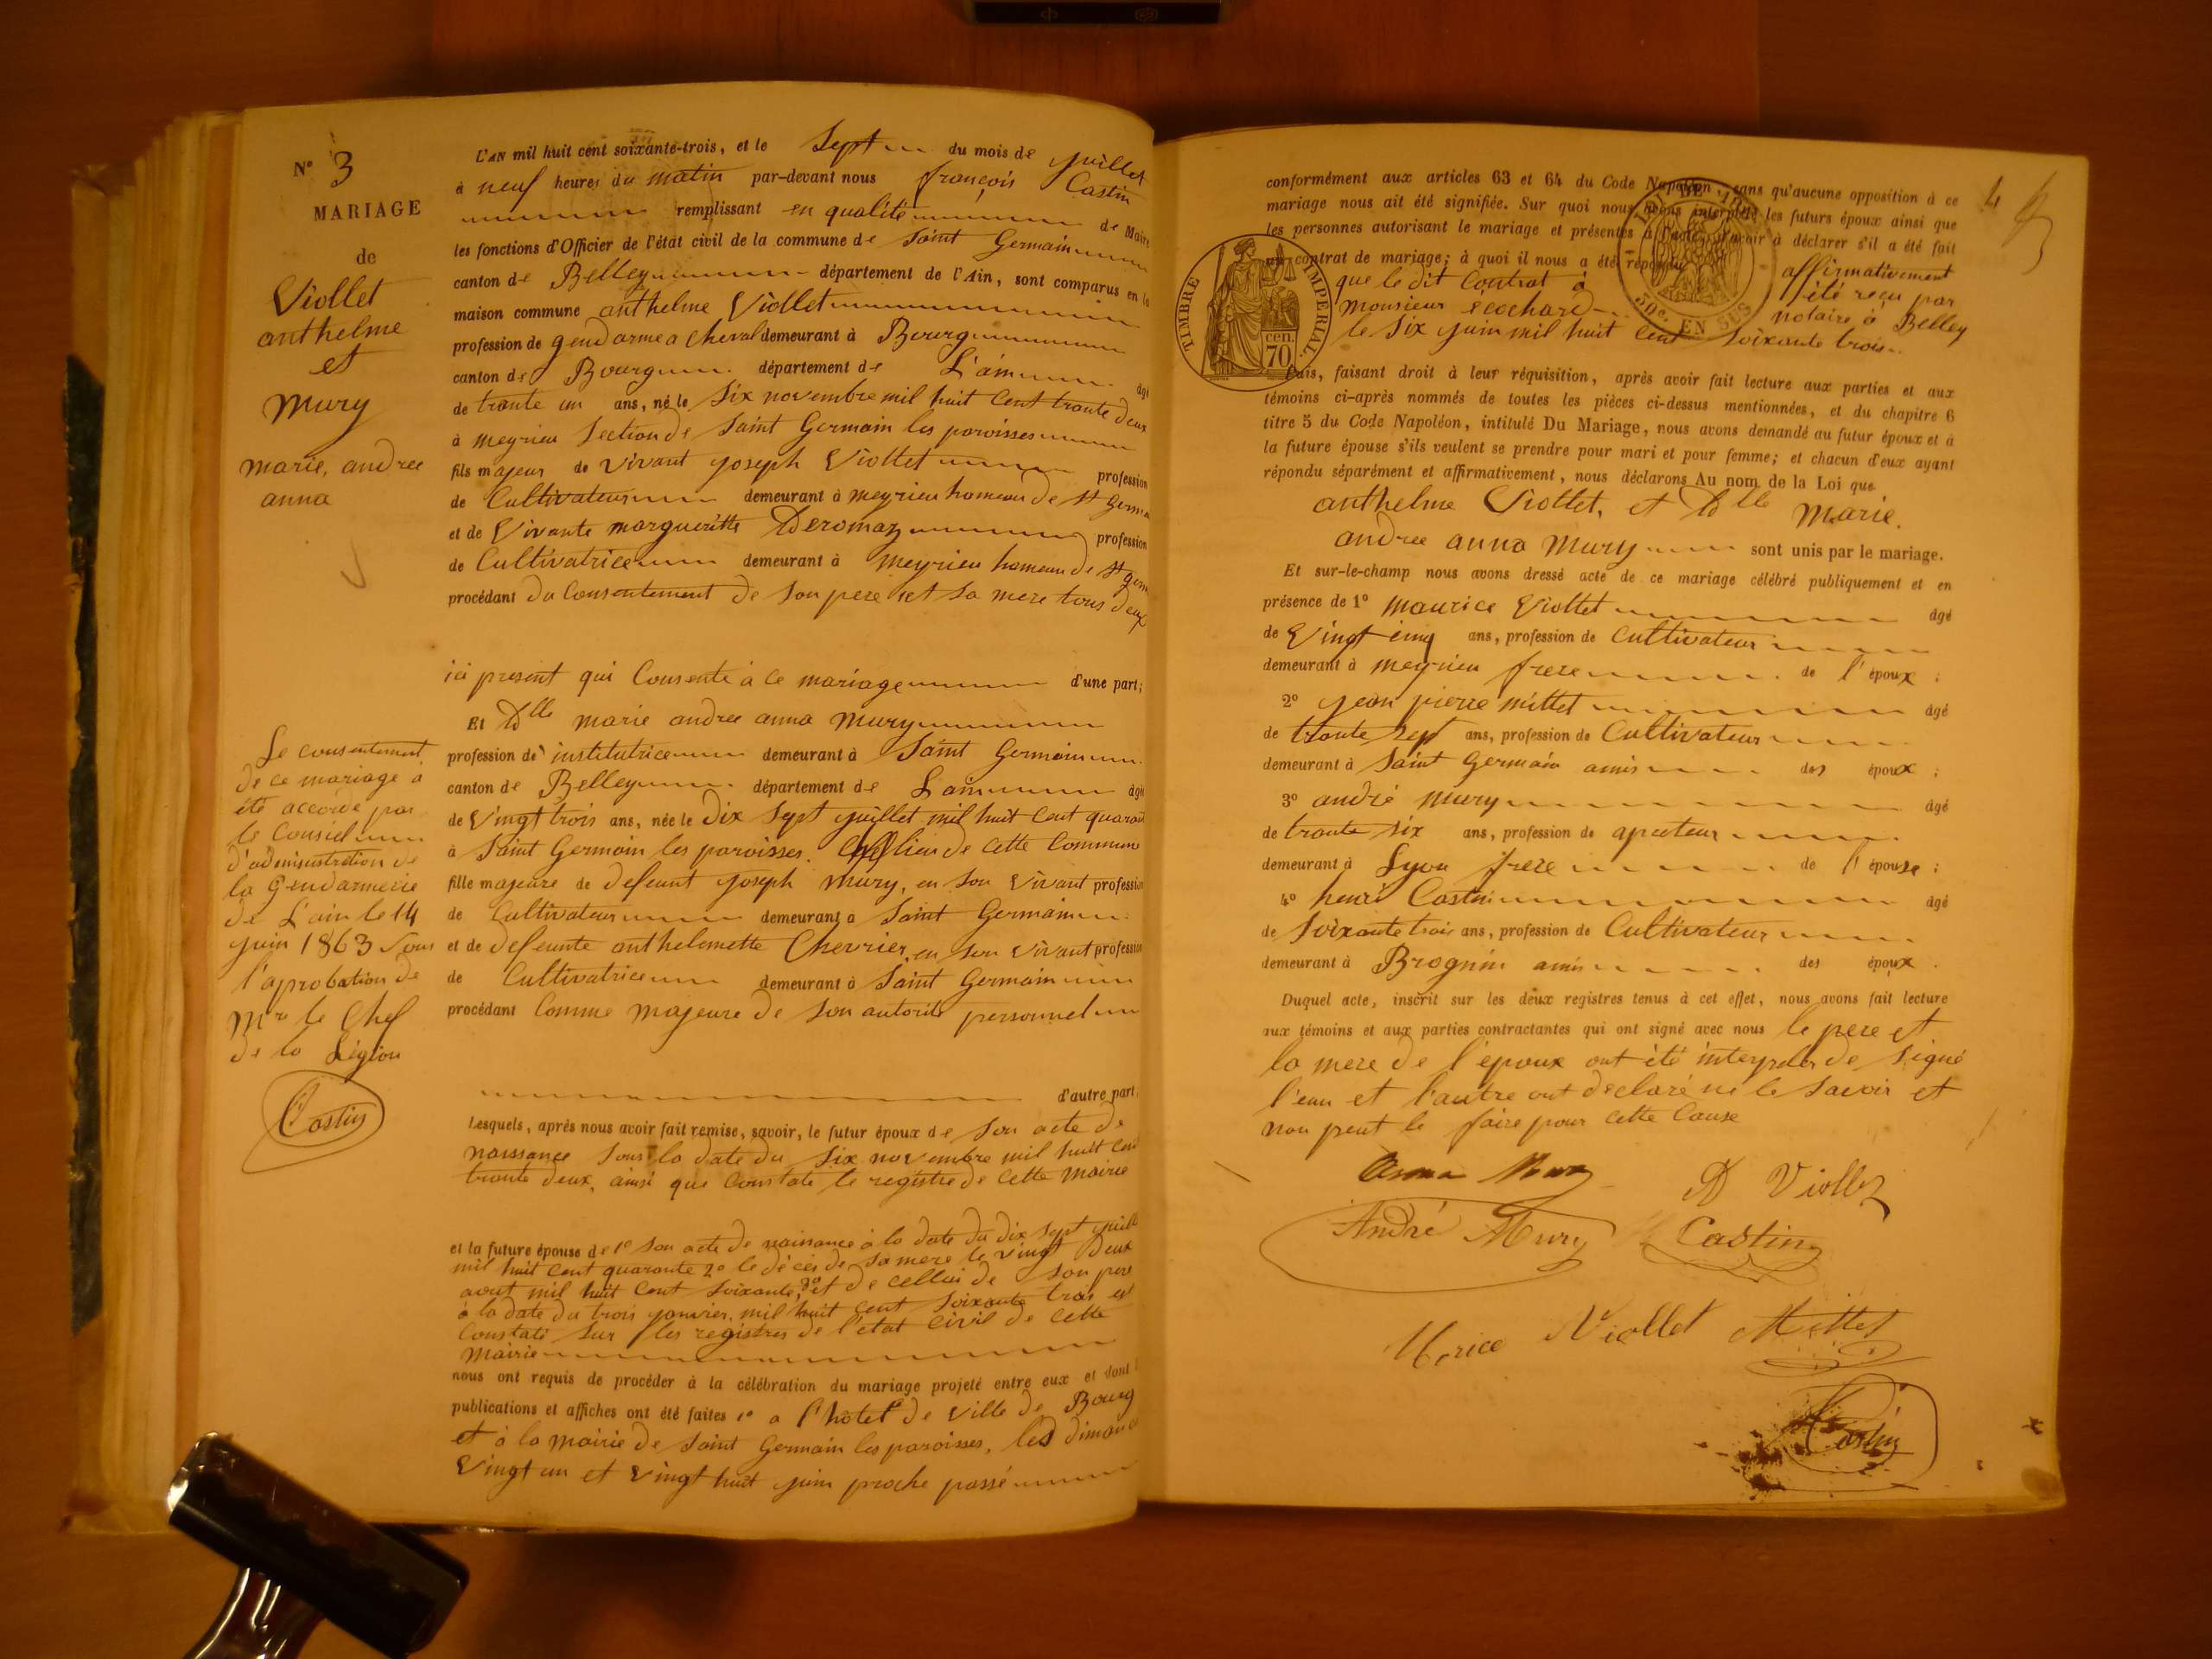 N° 3
MARIAGE
de
Viollet
anthelme
et
Mury
marie, andree
anna
Le consentement
de ce mariage à
été accordé par
le Consiel
d'administration de
la Gendarmerie
de L'ain le 14
juin 1863 sous
l'aprobation de
Mr le Chef
de la Légion
Castin
L'AN mil huit cent soixante-trois, et le Sept du mois de juillet
à neuf heures du matin par-devant nous françois Castin
remplissant en qualité de Maire
les fonctions d'Officier de l'état civil de la commune de Saint Germain
canton de Belley département de l'Ain, sont comparus en la
maison commune anthelme Viollet
profession de gendarme a cheval demeurant à Bourg
canton de Bourg département de L'ain âgé
de trante un ans, né le Six novembre mil huit Cent trante deux
à meyrieu Section de Saint Germain les paroisses
fils majeur de vivant joseph Viollet profession
de Cultivateur demeurant à meyrieu hameau de St Germain
et de Vivante margueritte Deromaz profession
de Cultivatrice demeurant à meyrieu hameau de St Germ
procédant du Consentement de Son pere et Sa mere tous deux
ici présent qui Consente à ce mariage d'une part;
Et Dlle marie andree anna Mury
profession de institutrice demeurant à Saint Germain
canton de Belley département de Lain âgée
de Vingt trois ans, née le Dix Sept juillet mil huit Cent quarante
à Saint Germain les paroisses. Cheflieu de Cette Commune
fille majeure de defeunt joseph Mury, en Son Vivant profession
de Cultivateur demeurant à Saint Germain
et de defeunte anthelmette Chevrier, en Son Vivant profession
de Cultivatrice demeurant à Saint Germain
procédant Comme majeure de Son autorité personnel
d'autre part.
Lesquels, après nous avoir fait remise, savoir, le futur époux de Son acte de
naissance Sous la date du Six novembre mil huit Cent
trante deux, ainsi que Constate le registre de Cette Mairie
et la future épouse de 1° Son acte de naissance à la date du Dix Sept juillet
mil huit Cent quarante 2° le décès de Sa mere le Vingt Deux
aout mil huit Cent Soixante, 3° et de cellui de Son pere
à la date du trois janvier, mil huit Cent Soixante trois est
Constaté Sur les registres de l'etat Civil de Cette
Mairie
nous ont requis de procéder à la célébration du mariage projeté entre eux et dont
publications et affiches ont été faites 1° a l'hôtel de Ville de Bourg
et à la mairie de Saint Germain les paroisses, les dimanche
Vingt un et Vingt huit juin proche passé
4
conformément aux articles 63 et 64 du Code Napoléon, sans qu'aucune opposition à ce
mariage nous ait été signifiée. Sur quoi nous avons interpellé les futurs époux ainsi que
les personnes autorisant le mariage et présentes à l'acte, d'avoir à déclarer s'il a été fait
un contrat de mariage; à quoi il nous a été répondu affirmativement
que le dit Contrat à été reçu par
Monsieur notaire à Belley
le Six juin mil huit Cent Soixante trois
TIMBRE IMPERIAL
70 cen.
50c. EN SUS
Puis, faisant droit à leur réquisition, après avoir fait lecture aux parties et aux
témoins ci-après nommés de toutes les pièces ci-dessus mentionnées, et du chapitre 6
titre 5 du Code Napoléon, intitulé Du Mariage, nous avons demandé au futur époux et à
la future épouse s'ils veulent se prendre pour mari et pour femme; et chacun d'eux ayant
répondu séparément et affirmativement, nous déclarons Au nom de la Loi que
anthelme Viollet, et Dlle Marie.
andree anna Mury sont unis par le mariage.
Et sur-le-champ nous avons dressé acte de ce mariage célébré publiquement et en
présence de 1° Maurice Viollet âgé
de Vingt cinq ans, profession de Cultivateur
demeurant à meyrieu frere de l'époux;
2° jean pierre mittet âgé
de trante Sept ans, profession de Cultivateur
demeurant à Saint Germain amis des époux;
3° andré Mury âgé
de trante six ans, profession de
demeurant à Lyon frere de l'épouse;
4° henri Castin âgé
de Soixante trois ans, profession de Cultivateur
demeurant à Brognin amis des époux.
Duquel acte, inscrit sur les deux registres tenus à cet effet, nous avons fait lecture
aux témoins et aux parties contractantes qui ont signé avec nous le pere et
la mere de l'époux ont été de Signé
l'eun et l'autre ont déclaré ne le Savoir et
non peut le faire pour Cette Cause
Anna Mury A Viollet
André Mury Castin
Morice Viollet Mittet
Castin